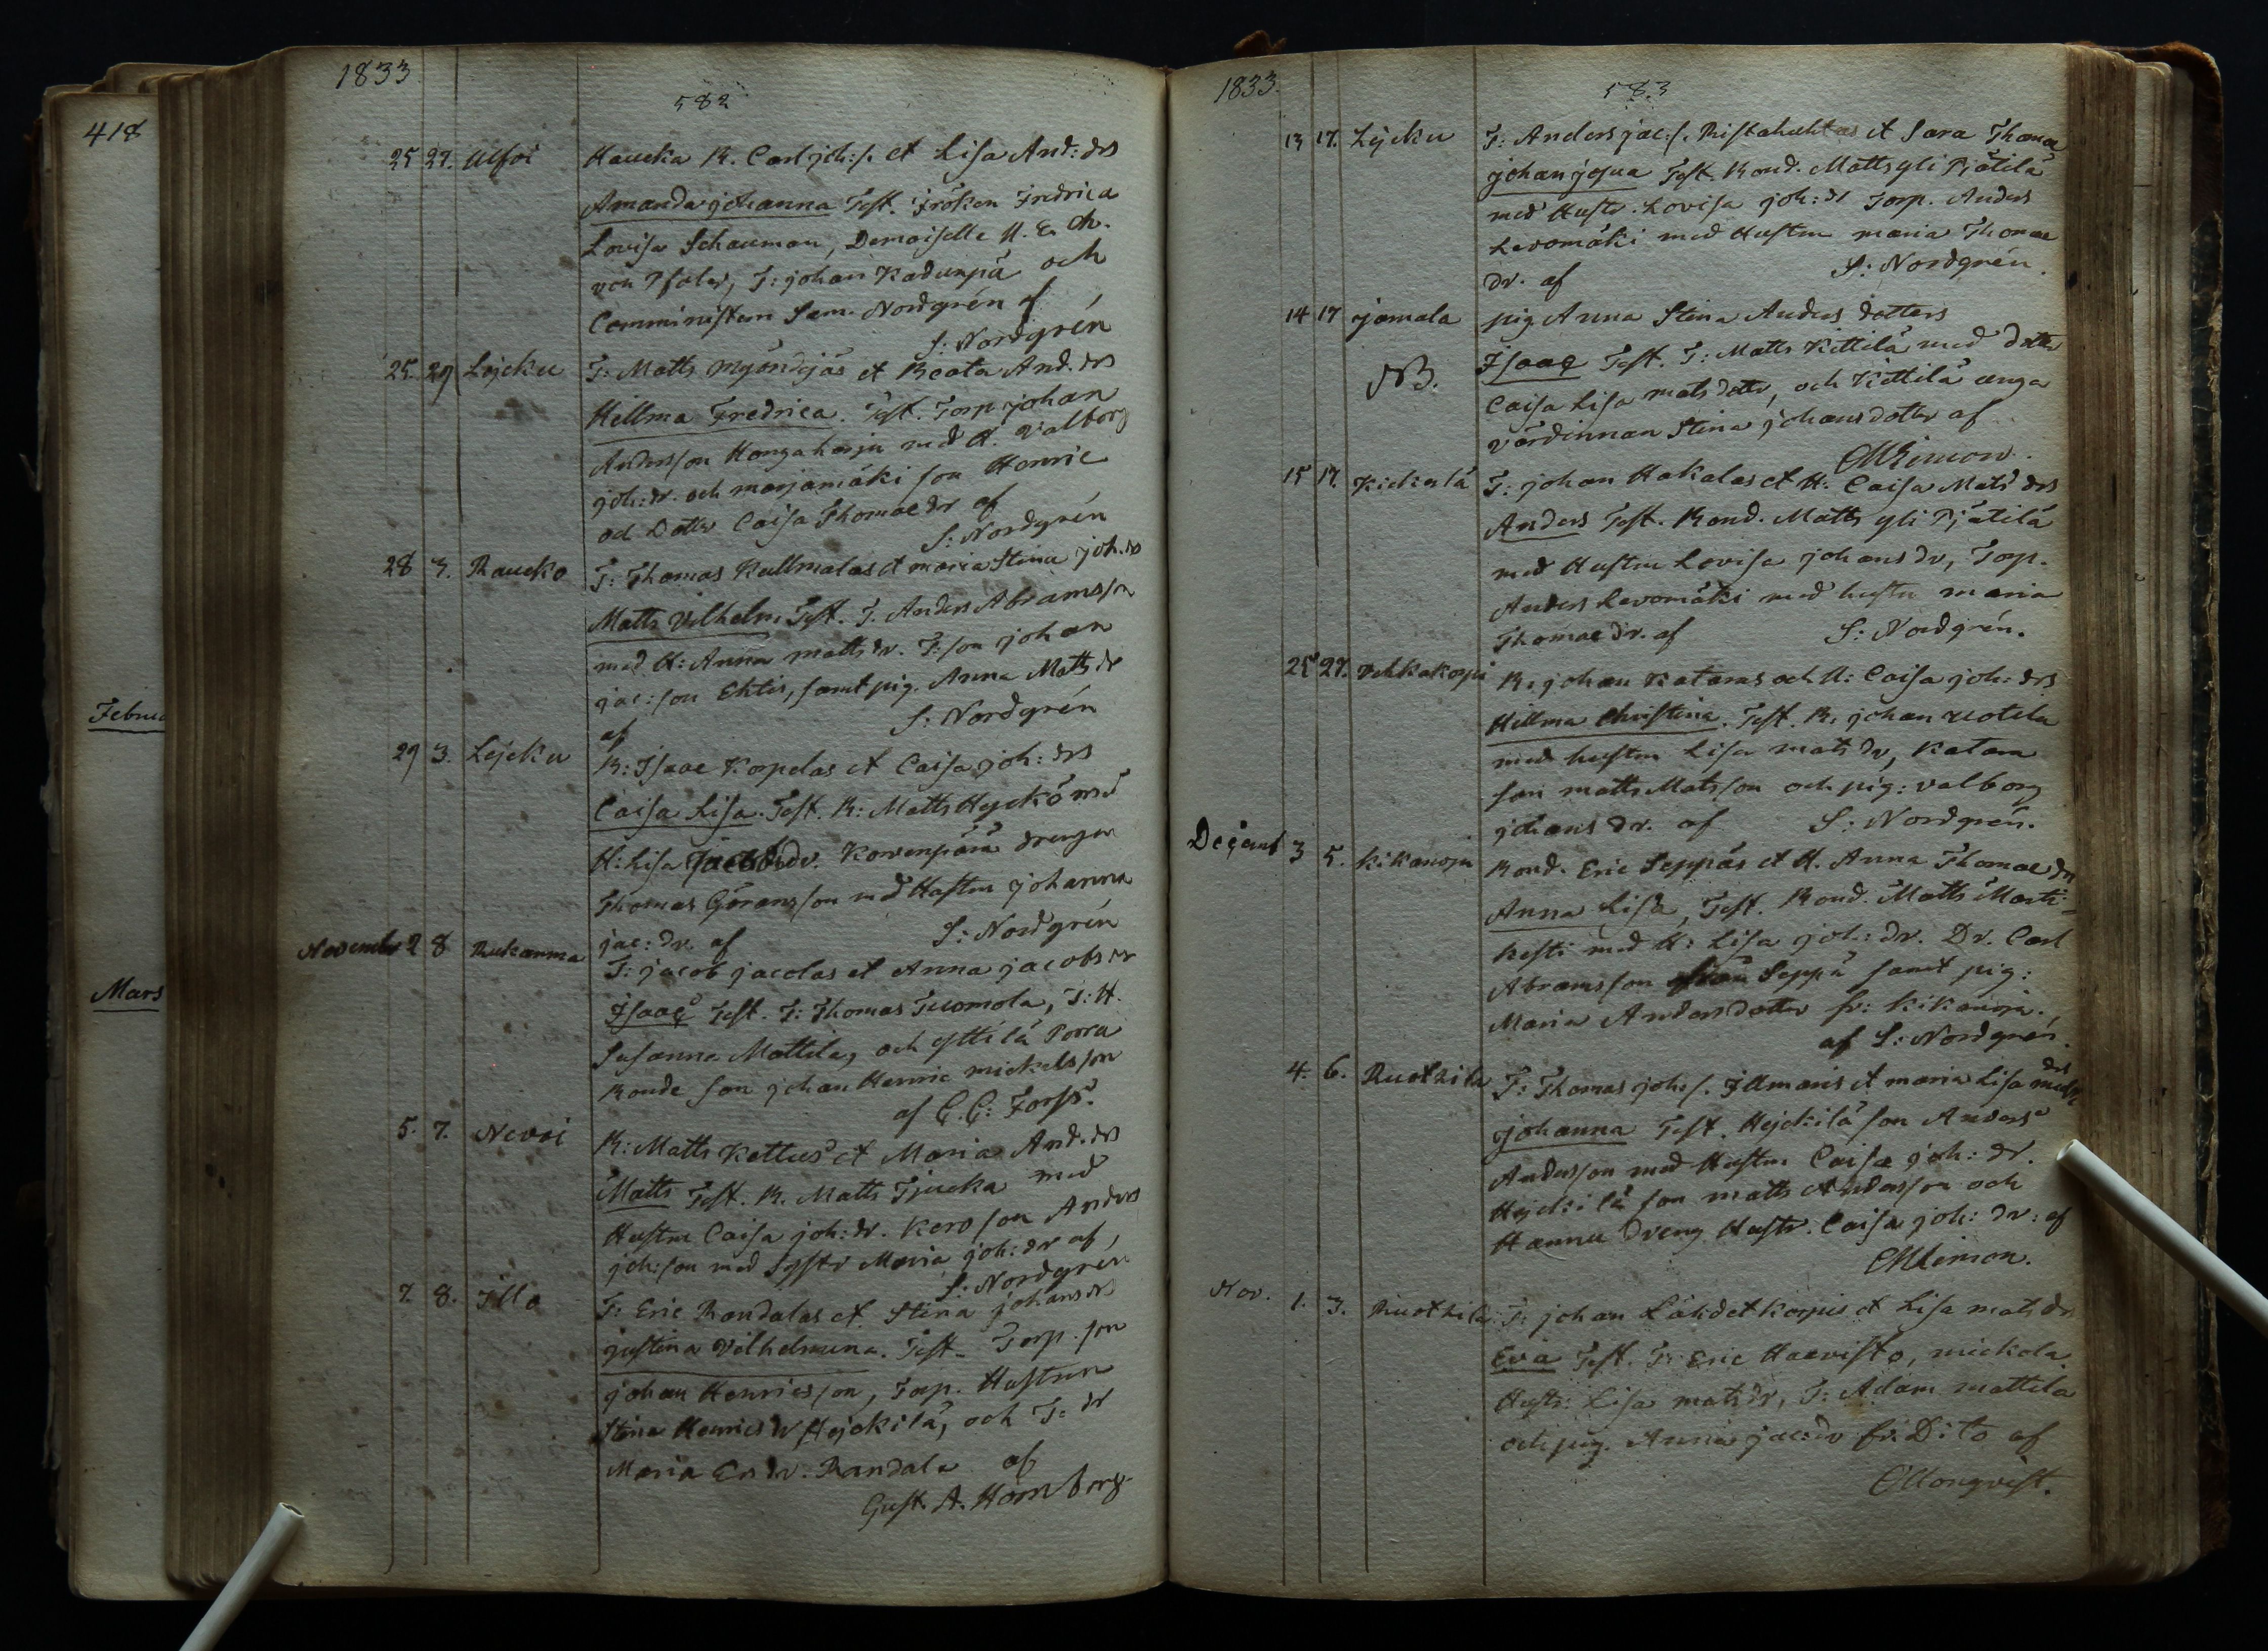 418
Februa
Mars
1833
582
25 27. Ulfoi Haucka R. Carl joh:s. et Lisa And: drs
Amanda johanna Test. Fröken Fredrica
Lovisa Schauman, Demoiselle U. E. Ch.
von Pfaler, T: johan Kadunpä och
Comministern Sam. Nordgrén af
S: Nordgrén
25. 29 Lejcku T: Matts Myöndjäs et Beata And. drs
Hellma Fredrica. Test. Torp johan
Andersson Hongaharju med H. Valborg
joh: dr. och marjamäki son Henric
och Dotter Caisa Thomae dr af
S: Nordgrén
28 3. Raucko T: Thomas Kullmalas et maria Stina joh. drs
Matts Vilhelm Test. T. Anders Abramsson
med H: Anna matts dr. T: son johan
jac: son Ehtis, samt pig. Anna Matts dr
af S: Nordgrén
29 3. Lejcku R: Isaac Korpelas et Caisa joh: drs
Caisa Lisa. Test. R: Matts Hyckö med
H: Lisa dr. Kovenpää drengen
Thomas Göransson med Hustru johanna
jac: dr. af S: Nordgrén
November 2 8 Ruckanma T: jacob jacolas et Anna jacobs dr
Isaac Test. T: Thomas Tuomola, T: H.
Susanna Mattila, och yttilä Porra
Bonde son johan Henric mickelsson
af G. G: Forss.
5. 7. Nevoi R: Matts Kettus et Maria And. drs
Matts Test. R. Matts Tjucka med
Hustru Caisa joh: dr. Kero son Anders
joh: son med Syster Maria joh: dr af,
S: Nordgrén
7. 8. Illo T: Eric Randalas et Stina johans dr
justina Vilhelmina. Test. Torp. son
johan Henricsson, Torp. Hustrun
Stina Henrics dr Hejckilä, och T: dr
Maria Ers dr. Randala af
Gust. A. Hornborg
1833.
583
13 17. Lejcku T: Anders jac:s. Ristahuhtas et Sara Thomae
johan josua Test. Bond. Matts yli Pjätilä
med Hustr. Lovisa joh: dr Torp. Anders
Levomäki med Hustru maria Thomae
dr. af S: Nordgrén.
14 17 jamala pig. Anna Stina Anders dotters
NB. Isaac Test. T: Matts Kittilä med dotter
Caisa Lisa mats dotter, och Kittilä unga
värdinnan Stina johans dotter af
15 17. Kickalä T: johan Hakalas et H: Caisa Mats drs
Anders Test. Bond. Matts yli Pjätilä
med Hustru Lovisa johans dr, Torp.
Anders Levomäki med hustru maria
Thomae dr. af S: Nordgrén.
25 27. R. johan Katamas och H: Caisa joh: drs
Hillma Christina. Test. R. johan Uotila
med hustru Lisa mats dr, Katama
son matts Matsson och pig: valborg
johans dr. af S: Nordgrén.
Decemb 3 5. Kikanoja Bond. Eric Seppäs et H. Anna Thomae drs
Anna Lisa, Test. Bond. Matts Marti-
kesti med H: Lisa joh: dr. Dr. Carl
Abramsson från Seppä samt pig:
Maria Anders dotter fr: Kikanoja.,
af S: Nordgrén.
4. 6. Ruotzila T: Thomas joh:s. Illmaris et maria Lisa mats drs
johanna Test. Hejckilä son Anders
Andersson med Hustru Caisa joh: dr.
Hejckilä son matts Andersson och
Hannu dreng Hustr. Caisa joh: dr: af
Nov. 1. 3. Ruotzila T: johan Lähdetkorpis et Lisa mats dr
Eva Test. T: Eric Haavisto, mickola
Hustr: Lisa mats dr, T: Adam mattila
och pig. Anna jac: dr fr. Dito af